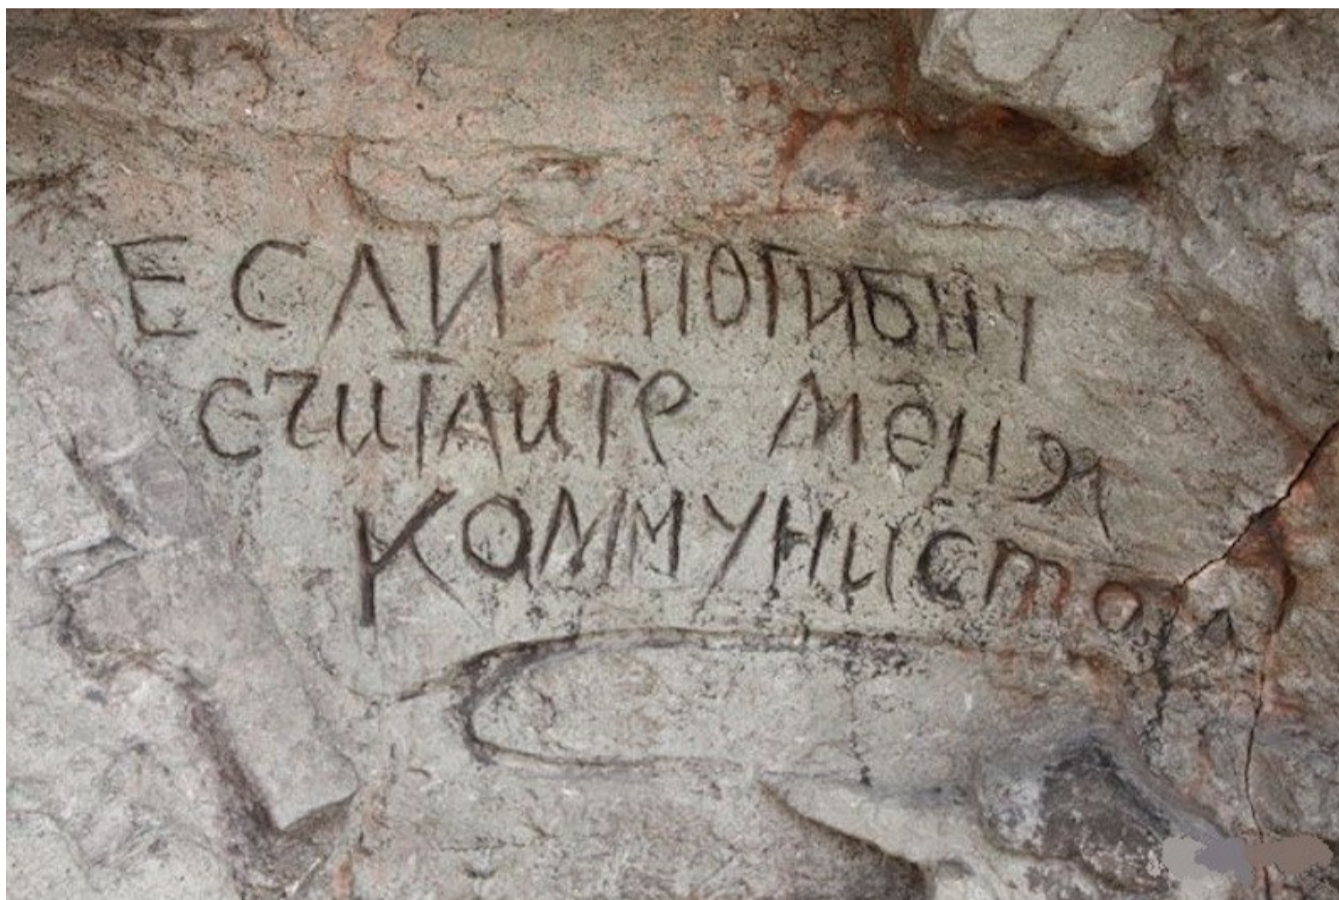 ЕСЛИ ПОГИБНУ
СЧИТАИТЕ МЕНЯ
КОММУНИСТОМ